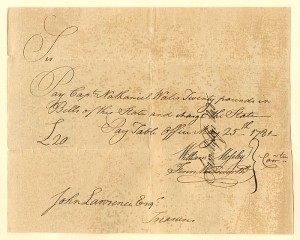 Sir
Pay Capt Nathaniel Wales Twenty pounds in
Bills of this State and charge the State
£20 Pay Table Office May 25th 1780
William Mosely
Fenn Wadsworth
Comtee
John Lawrence Esqr
Treasurer